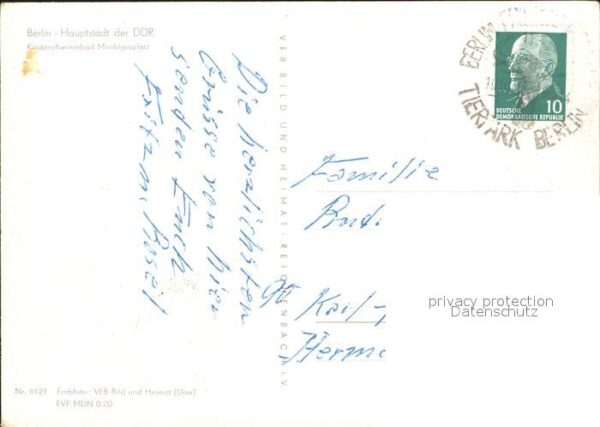 Berlin - Hauptstadt der DDR
Kinderschwimmbad Monbijouplatz
Die herzlichsten
Grüsse von hier
senden Euch
Fritz u. Rosel
VEB BILD UND HEIMAT · REICHENBACH i. V.
BERLIN
TIERPARK BERLIN
10
DEUTSCHE
DEMOKRATISCHE REPUBLIK
Familie
90
Karl-
privacy protection
Datenschutz
Nr. 6121 Farbfoto: VEB Bild und Heimat (Dorr)
EVP MDN 0.20